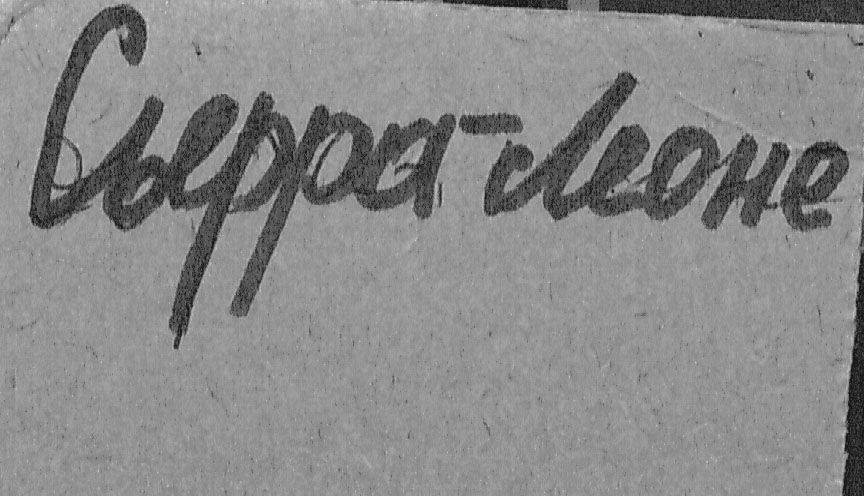 Сьерра-Леоне